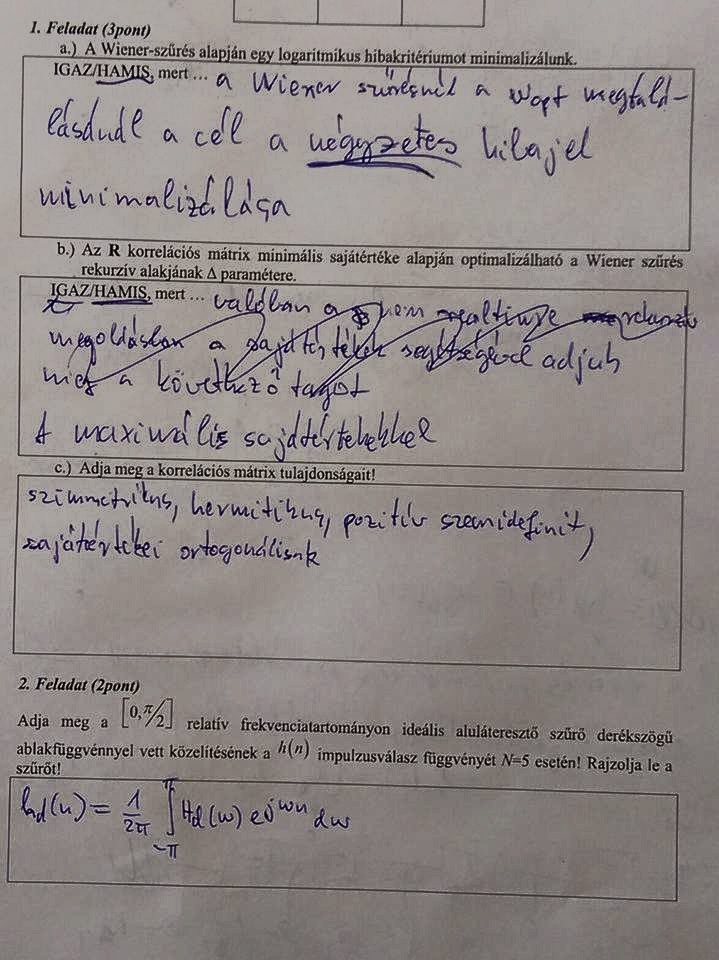 1. Feladat (3pont)
a.) A Wiener-szűrés alapján egy logaritmikus hibakritériumot minimalizálunk.
IGAZ/HAMIS, mert ... a Wiener szűrésnél a Wopt megtalá-
lásánál a cél a négyzetes hibajel
minimalizálása
b.) Az R korrelációs mátrix minimális sajátértéke alapján optimalizálható a Wiener szűrés
rekurzív alakjának Δ paramétere.
IGAZ/HAMIS, mert ... valóban a nem
megoldásban a sajátértékek segítségével adjuk
meg a következő tagot
A maximális sajátértékekkel
c.) Adja meg a korrelációs mátrix tulajdonságait!
szimmetrikus, hermitikus, pozitív szemidefinit,
sajátértékei ortogonálisak
2. Feladat (2pont)
Adja meg a [0,π/2] relatív frekvenciatartományon ideális aluláteresztő szűrő derékszögű
ablakfüggvénnyel vett közelítésének a h(n) impulzusválasz függvényét N=5 esetén! Rajzolja le a
szűrőt!
hd(n) = 1/2π ∫_{-π}^{π} Hd(ω) e^{jωn} dω